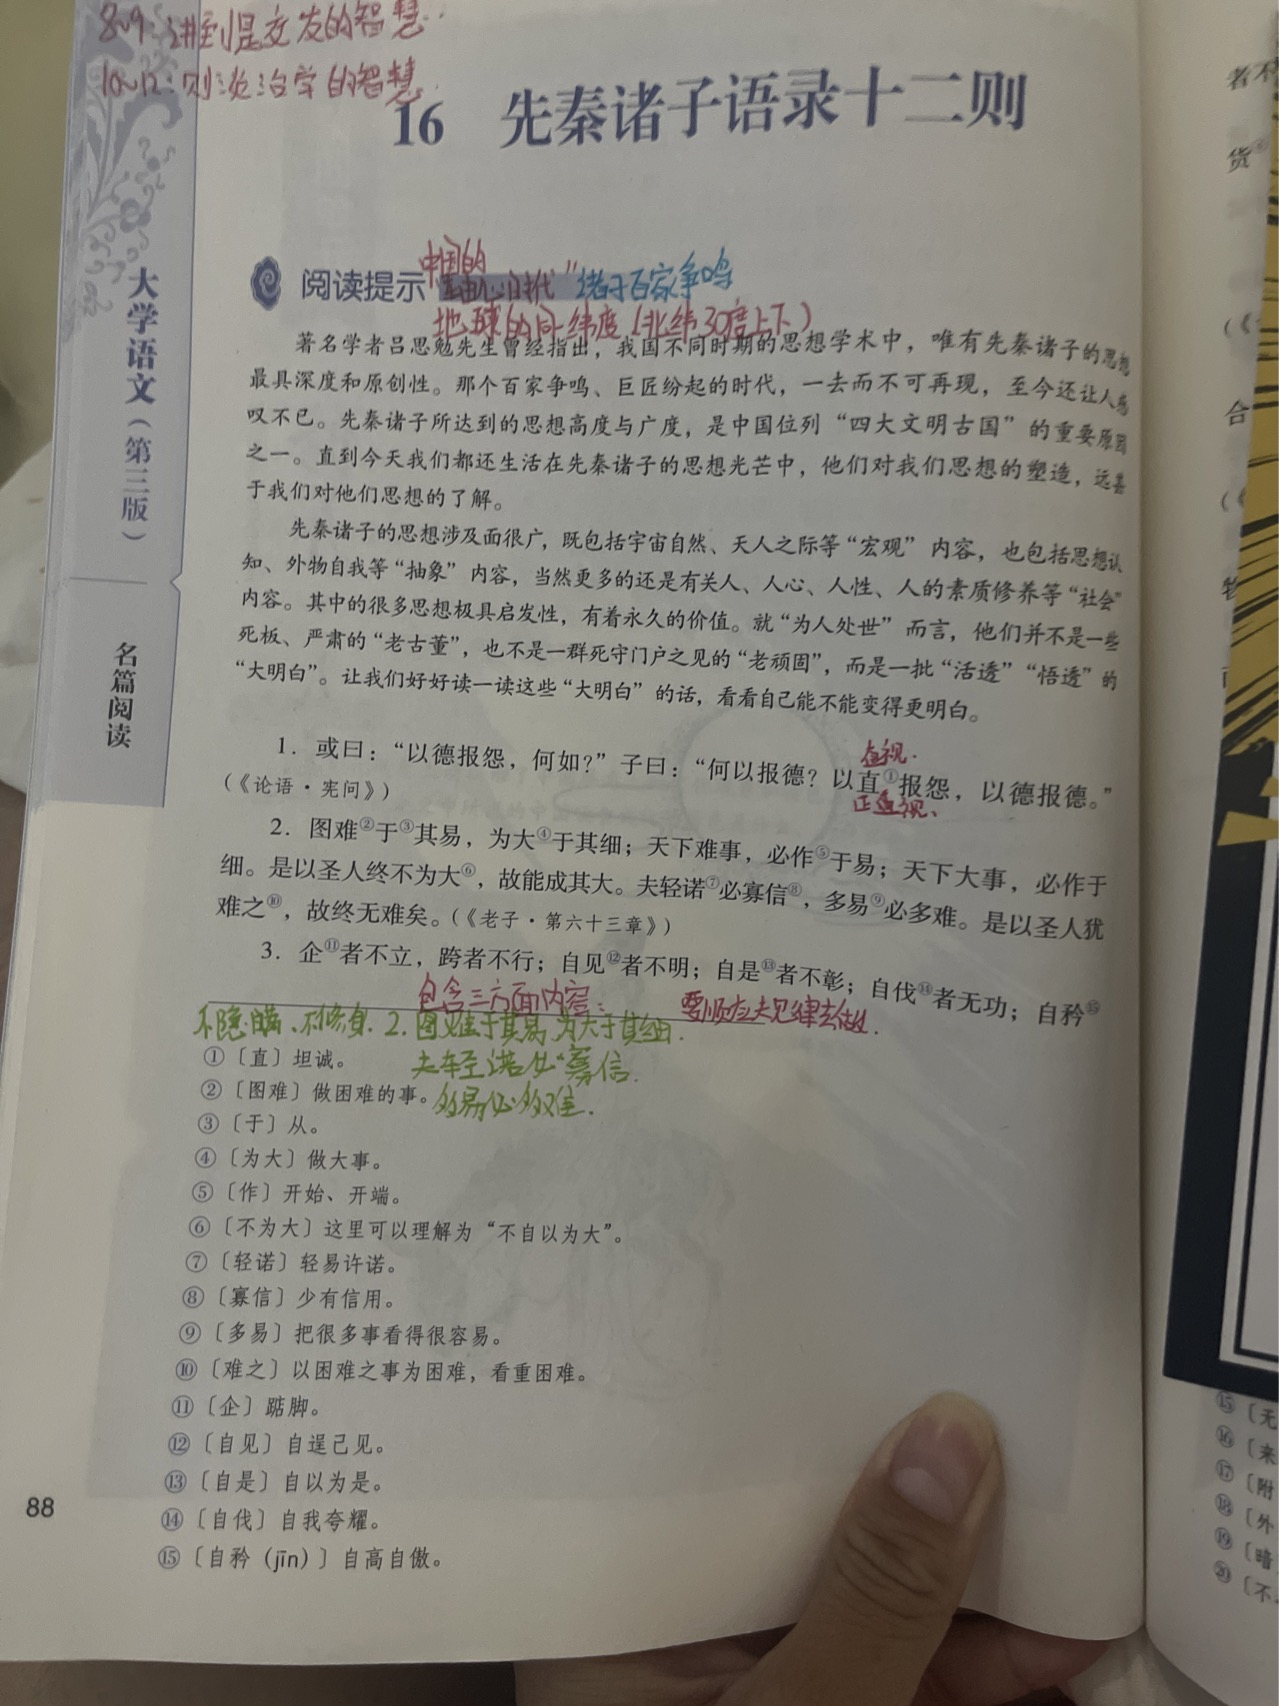 8~9:讲到是交友的智慧.
10~12:则谈治学的智慧.
16 先秦诸子语录十二则
中国的
阅读提示 轴心时代” 诸子百家争鸣
地球的同纬度(北纬30度上下)
著名学者吕思勉先生曾经指出，我国不同时期的思想学术中，唯有先秦诸子的思想
最具深度和原创性。那个百家争鸣、巨匠纷起的时代，一去而不可再现，至今还让人感
叹不已。先秦诸子所达到的思想高度与广度，是中国位列“四大文明古国”的重要原因
之一。直到今天我们都还生活在先秦诸子的思想光芒中，他们对我们思想的塑造，远甚
于我们对他们思想的了解。
先秦诸子的思想涉及面很广，既包括宇宙自然、天人之际等“宏观”内容，也包括思想认
知、外物自我等“抽象”内容，当然更多的还是有关人、人心、人性、人的素质修养等“社会”
内容。其中的很多思想极具启发性，有着永久的价值。就“为人处世”而言，他们并不是一些
死板、严肃的“老古董”，也不是一群死守门户之见的“老顽固”，而是一批“活透”“悟透”的
“大明白”。让我们好好读一读这些“大明白”的话，看看自己能不能变得更明白。
直视.
1. 或曰：“以德报怨，何如？”子曰：“何以报德？以直①报怨，以德报德。”
（《论语·宪问》）
正直视、
2. 图难②于③其易，为大④于其细；天下难事，必作⑤于易；天下大事，必作于
细。是以圣人终不为大⑥，故能成其大。夫轻诺⑦必寡信⑧，多易⑨必多难。是以圣人犹
难之⑩，故终无难矣。（《老子·第六十三章》）
3. 企⑪者不立，跨者不行；自见⑫者不明；自是⑬者不彰；自伐⑭者无功；自矜⑮
包含三方面内容： 要顺应夫见律去做.
不隐瞒、不修身. 2. 图难于其易,为大于其细.
夫轻诺必寡信.
多易必多难.
①〔直〕坦诚。
②〔图难〕做困难的事。
③〔于〕从。
④〔为大〕做大事。
⑤〔作〕开始、开端。
⑥〔不为大〕这里可以理解为“不自以为大”。
⑦〔轻诺〕轻易许诺。
⑧〔寡信〕少有信用。
⑨〔多易〕把很多事看得很容易。
⑩〔难之〕以困难之事为困难，看重困难。
⑪〔企〕踮脚。
⑫〔自见〕自逞己见。
⑬〔自是〕自以为是。
⑭〔自伐〕自我夸耀。
⑮〔自矜（jīn）〕自高自傲。
88
大学语文（第三版）
名篇阅读
者不
货
合
⑮〔无
⑯〔来
⑰〔附
⑱〔外
⑲〔暗
⑳〔不